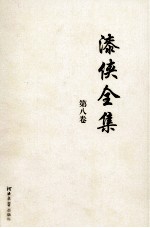 漆侠全集
第八卷
河北大学出版社